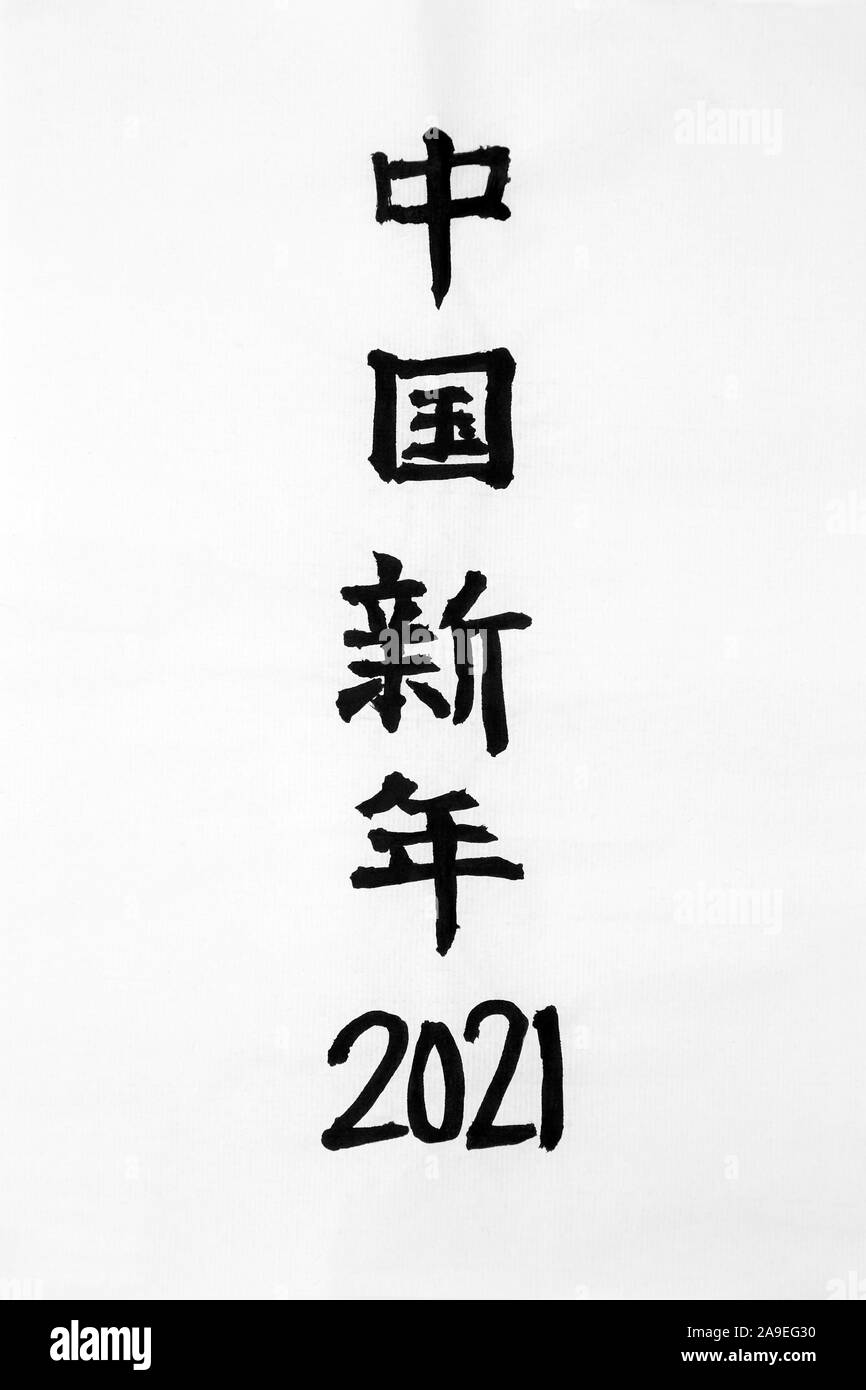 中国新年
2021
alamy
alamy
alamy
a
alamy
Image ID: 2A9EG30
www.alamy.com